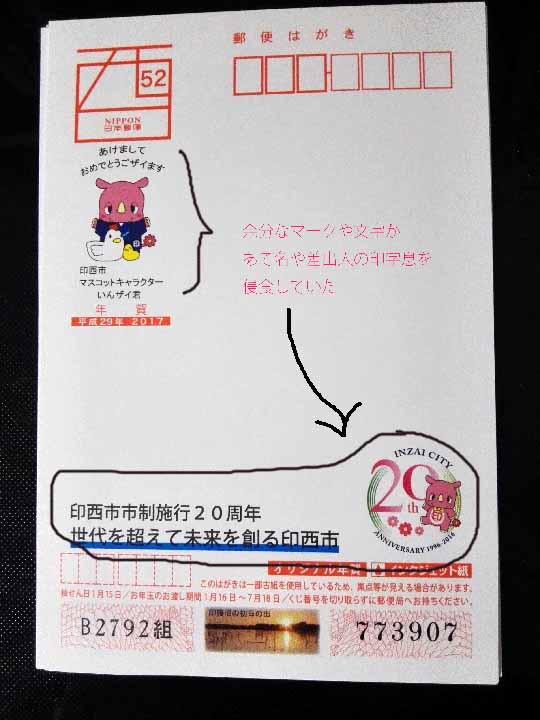 郵便はがき
52
NIPPON
日本郵便
あけまして
おめでとうござイます
印西市
マスコットキャラクター
いんザイ君
年賀
平成29年 2017
余分なマークや文字が
あて名や差出人の印字息を
侵食していた
INZAI CITY
20th
ANNIVERSARY 1996-2016
印
印西市市制施行20周年
世代を超えて未来を創る印西市
オリジナル年賀 インクジェット紙
このはがきは一部古紙を使用しているため、黒点等が見える場合があります。
抽せん日1月15日/お年玉のお渡し期間1月16日~7月18日/くじ番号を切り取らずに郵便局へお持ちください。
B2792組
印旛沼の初日の出
773907